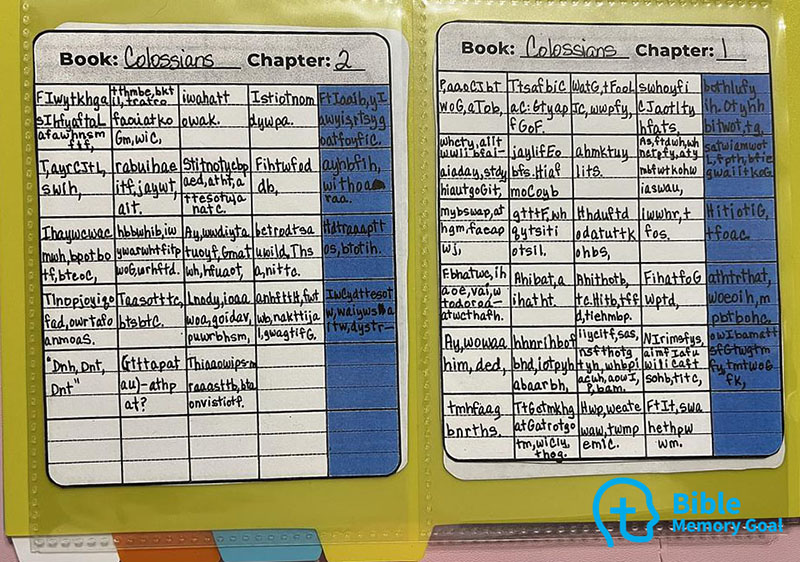 Book: Colossians Chapter: 2
FIwytkhga
sIhfyaftaL
afawhnsm
ftf,
tthmbe,bkt
faoiatko
Gm,wiC,
iwahatt
owak.
Istiotnom
dywpa.
T,ayrCJtL,
swih,
rabuihae
itf,jaywt,
ait.
Stitnotycbp
aed,atht,a
natC.
Fihtwfad
db,
ayhbfih,
withoa
raa.
Ihaywcwac
mwh,bpotbo
tf,btcoC,
hbbwhib,iw
ywaswhtfitp
woG,urhftd.
Ay,wwdiyta
tuoyf,Gmat
wh,hfuaot,
bctrodtsa
uwild,Ths
a,nittc.
Hdtraaaptt
os,btotih.
Tlnopjoyigo
fad,owrtafo
anmoaS.
Taasotttc,
btsbtC.
Lnady,ioaa
woa,goidav,
puwrbhsm,
anhftttH,fwt
wb,nakttija
l,gwagtifG.
IwCydttesot
w,waiyws
itw,dystr—
"Dnh, Dnt,
Dnt"
Gttapat
au)-athp
at?
Thiaaowips-m
raaasttb,bta
onvistiotf.
Book: Colossians Chapter: 1
P,aaoCJbt
woG,aTob,
TtsafbiC
aC:Gtyap
fGoF.
WatG,tFool
Jc,wwpfy,
swhoyfi
CJaotlty
hfats,
bothlufy
ih.Otyhh
bitwot,tg,
whcty,aitt
wwiibfai-
aiaday,stdy
hiautgoGit,
jaylifEo
bfs.Hiaf
moCoyb
ahmktuy
litS.
As,ftdwh,wh
nsrpfy,aty
mbfwtkohw
iaswau,
satwiamwot
L,fpth,btie
gwaiitkoG
mybswap,at
hgm,facap
wj,
gtttF,wh
qytsiti
otsil.
Hhduftd
odatuttk
ohbs,
iwwhr,t
fos.
HitiotiG,
tfoac.
Fbhatwc,ih
aoe,vai,w
todorad-
atwcthafh.
Ahibat,a
ihatht.
Ahithotb,
tc.Hitb,tff
d,tiehmbp.
FihatfoG
wptd,
athtrthat,
woeoih,m
pbtbohc.
Ay,wowaa
him,ded,
hhnrihbof
bhd,iotpyh
abaarbh,
iiycitf,sas,
nsftthotg
tyh,whbpi
acuh,aowI,
P,bam.
NIrimsfys,
aimfIafu
wiliCaft
sohb,titc,
owIbamatt
sfGtwgtm
fy,tmtwoG
fk,
tmhfaag
bnrths.
TtGotmkhg
atGatrotgo
tm,wiCiy,
thog.
Hwp,weate
waw,twmp
emiC.
FtIt,swa
hethpw
wm.
Bible
Memory Goal